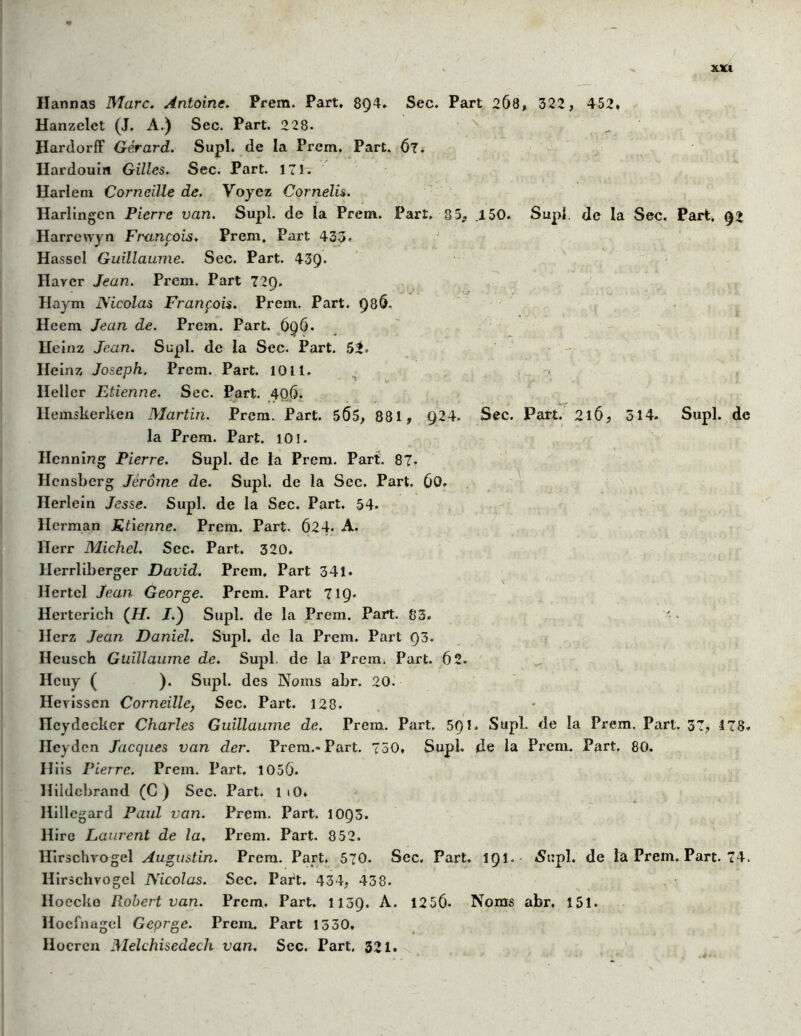 xxi
Hannas Marc. Antoine. Prem. Part. 894. Sec. Part 268, 322, 452,
Hanzelet (J. A.) Sec. Part. 228.
Hardorff Gérard. Supl. de la Prem. Part. 67.
Hardouin Gilles. Sec. Part. 171.
Harlem Corneille de. Voyez Cornelis.
Harlingen Pierre van. Supl. de la Prem. Part. 85, 150. Supl. de la Sec. Part. 92
Harrewyn François. Prem. Part 433.
Hassel Guillaume. Sec. Part. 439.
Haver Jean. Prem. Part 729.
Haym Nicolas François. Prem. Part. 986.
Heem Jean de. Prem. Part. 696.
Heinz Jean. Supl. de la Sec. Part. 52.
Heinz Joseph. Prem. Part. 1011.
Heller Etienne. Sec. Part. 406.
Hemskerken Martin. Prem. Part. 565, 881, 924. Sec. Part. 216, 314. Supl. de
la Prem. Part. 101.
Henning Pierre. Supl. de la Prem. Part. 87.
Hensberg Jérôme de. Supl. de la Sec. Part. 60.
Herlein Jesse. Supl. de la Sec. Part. 54.
Herman Etienne. Prem. Part. 624. A.
Herr Michel. Sec. Part. 320.
Herrliberger David. Prem. Part 341.
Hertel Jean George. Prem. Part 719.
Herterich (H. I.) Supl. de la Prem. Part. 83.
Herz Jean Daniel. Supl. de la Prem. Part 93.
Heusch Guillaume de. Supl. de la Prem. Part. 62.
Heuy ( ). Supl. des Noms abr. 20.
Hevissen Corneille, Sec. Part. 128.
Heydecker Charles Guillaume de. Prem. Part. 591. Supl. de la Prem. Part. 37, 178.
Heyden Jacques van der. Prem. Part. 750, Supl. de la Prem. Part. 80.
Hiis Pierre. Prem. Part. 1056.
Hildebrand (C) Sec. Part. 110.
Hillegard Paul van. Prem. Part. 1093.
Hire Laurent de la. Prem. Part. 852.
Hirschvogel Augustin. Prem. Part. 570. Sec. Part. 191. Supl. de la Prem. Part. 74.
Hirschvogel Nicolas. Sec. Part. 434, 438.
Hoecke Robert van. Prem. Part. 1139. A. 1256. Noms abr. 151.
Hoefnagel George. Prem. Part 1330.
Hoeren Melchisedech van. Sec. Part. 321.